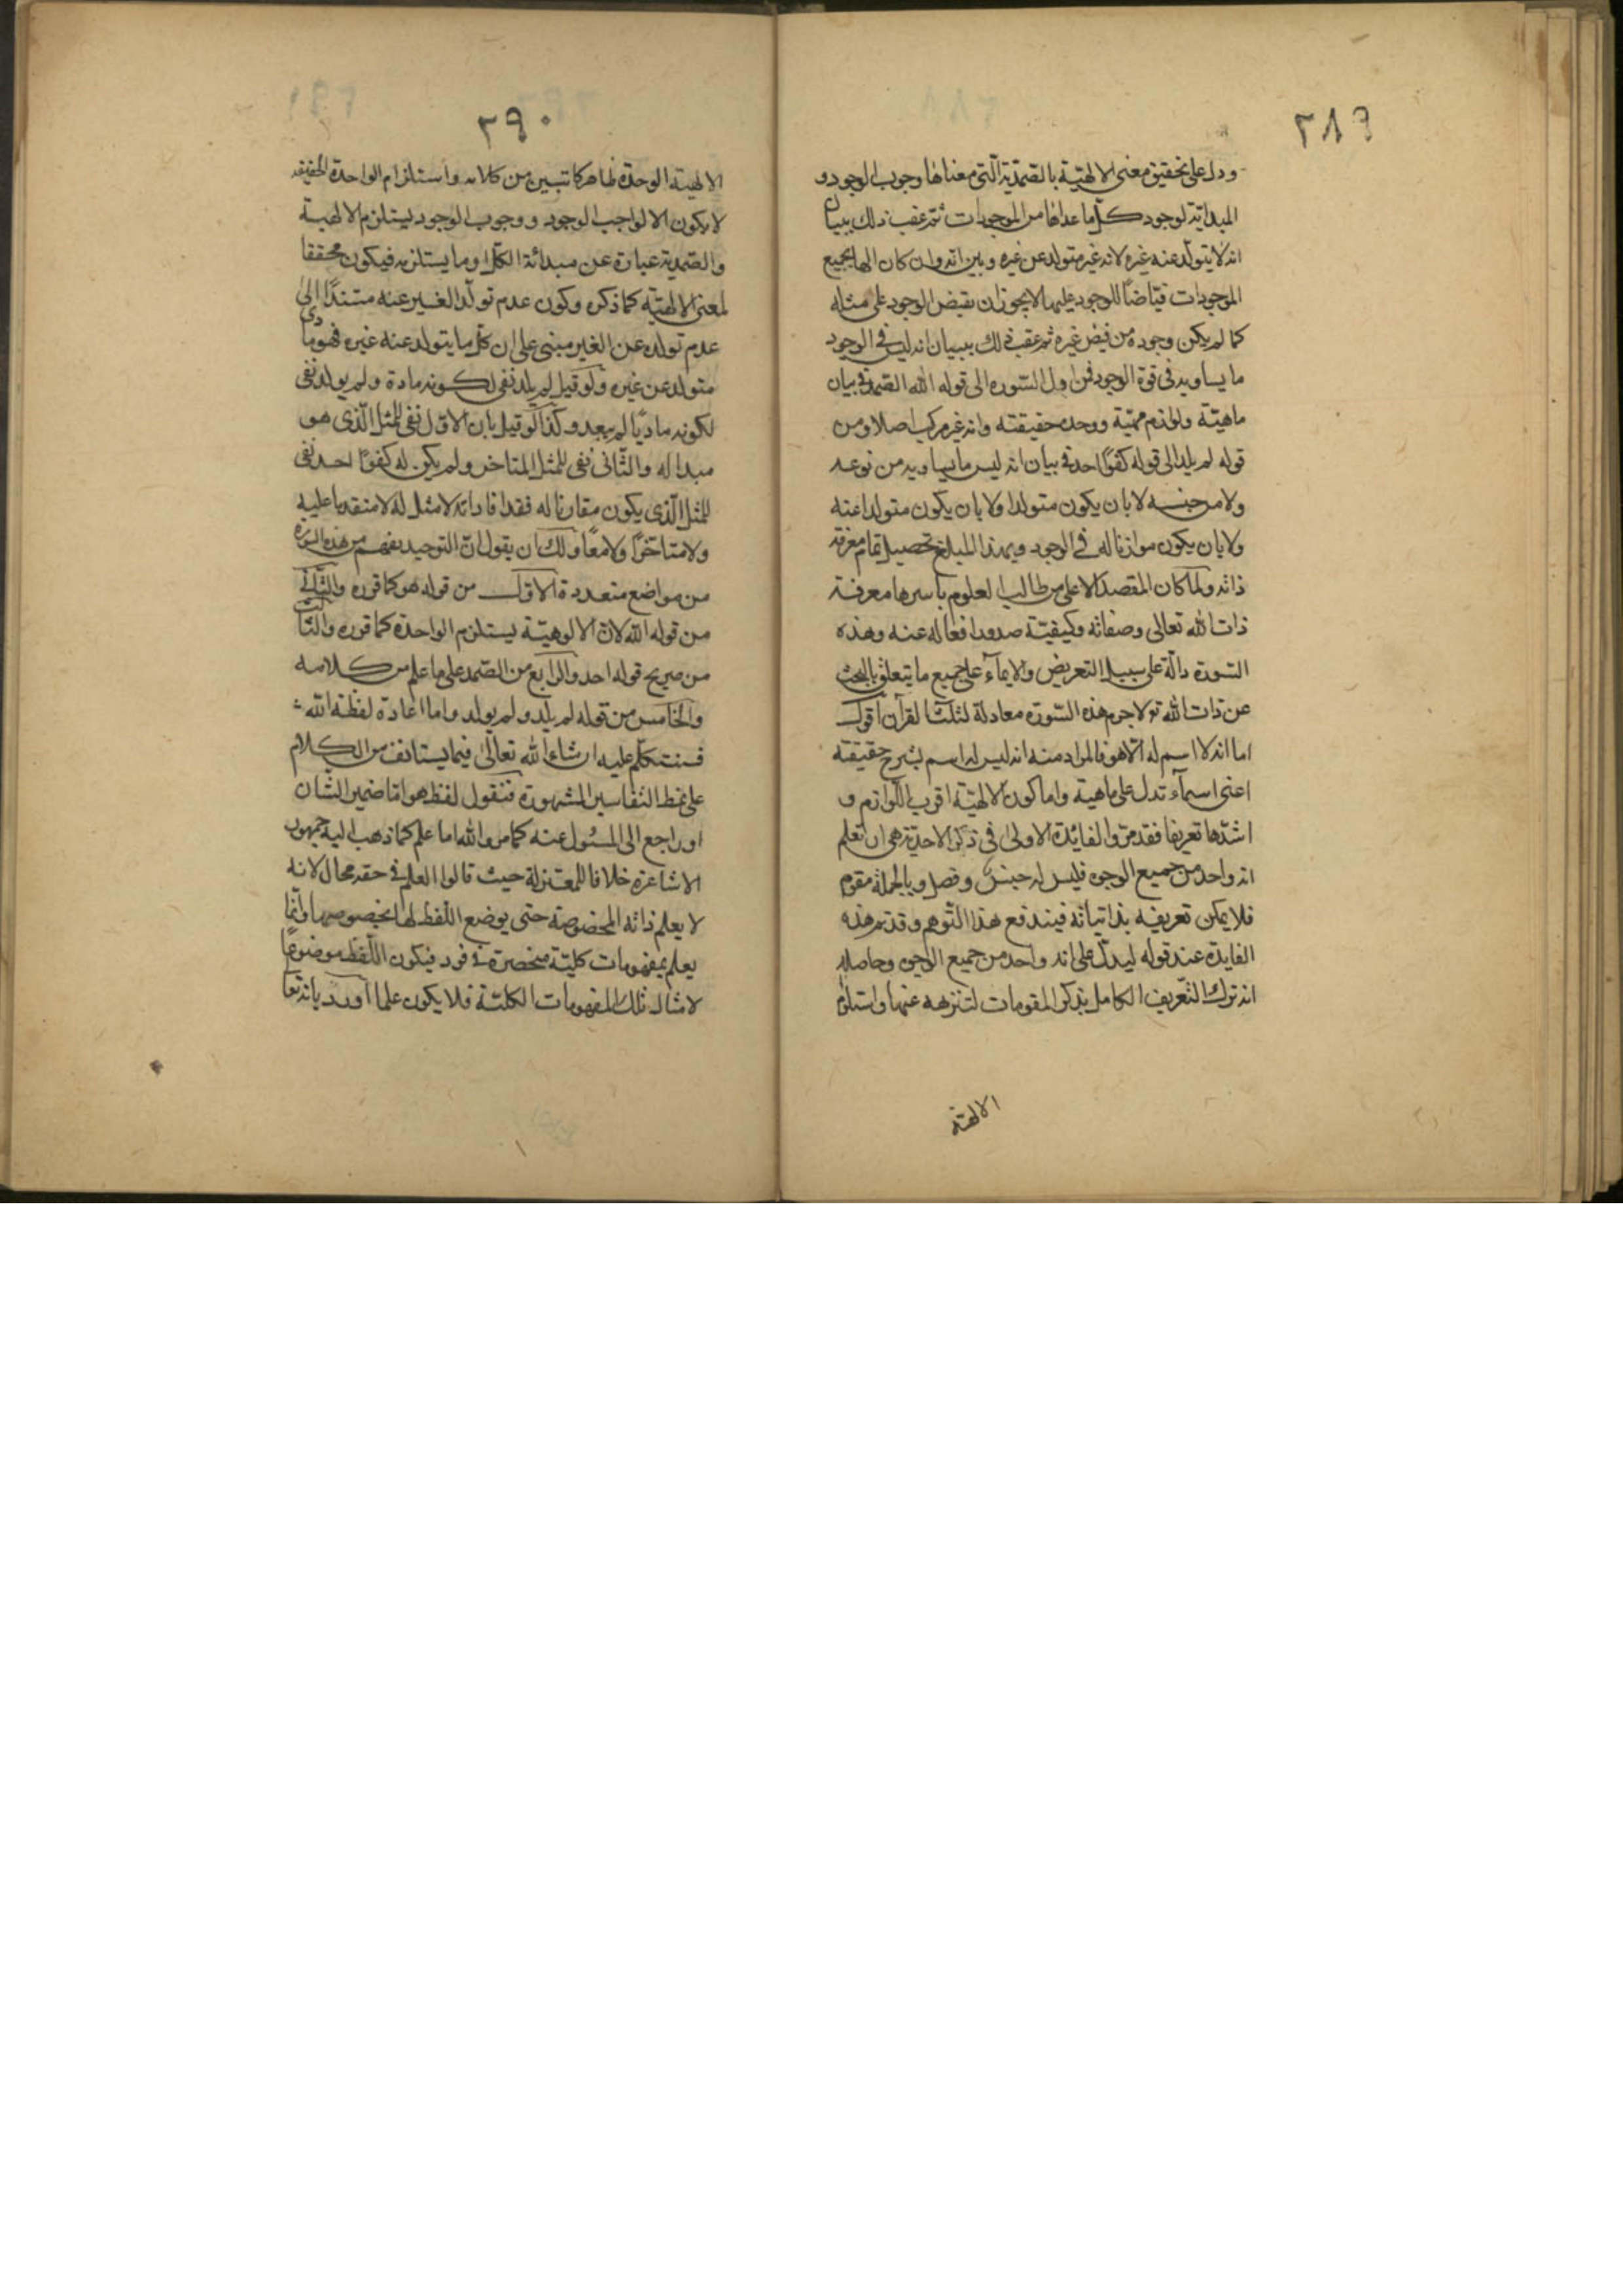 ٢٨٩
ودل على تحقيق معنى الالهية بالصمدية التي معناها وجوب الوجود و
المبدائية لوجود كل ما عداها من الموجودات ثم عقب ذلك ببيان
انه لا يتولد عنه غيره لانه غير متولد عن غيره وبين انه وان كان الها لجميع
الموجودات فياضا للوجود عليها لا يجوز ان يفيض الوجود على مثله
كما لم يكن وجوده من فيض غيره ثم عقب ذلك ببيان انه ليس في الوجود
ما يساويه في قوة الوجود فمن اول السوره الى قوله الله الصمد في بيان
ماهيته ولوازم مهيته ووحده حقيقته وانه غير مركب اصلا ومن
قوله لم يلد الى قوله كفوًا احد في بيان انه ليس ما يساويه من نوعه
ولا من جنسه لا بان يكون متولدا ولا بان يكون متولدا عنه
ولا بان يكون موازنا له في الوجود وبهذا المبلغ تحصيل تمام معرفة
ذاته ولما كان المقصد الاعلى من طالب العلوم باسرها معرفة
ذات الله تعالى وصفاته وكيفيّة صدور افعاله عنه وهذه
السّورة دالّة على سبيل التعريض والايمآء على جميع ما يتعلق بالبحث
عن ذات الله تع لاجرم هذه السّورة معادلة لثلث القرآن اقول
اما انه لا اسم له الا هو فالمراد منه انه ليس له اسم يشرح حقيقته
اعنى اسمآء تدل على ماهيته واما كون الالهيّة اقرب اللّوازم و
اشدّها تعريفا فقد مرّ والفائدة الاولى في ذكر الاحدية هي ان تعلم
انه واحد من جميع الوجوه فليس له جنس وفصل وبالجملة مقوم
فلا يمكن تعريفه بذاتياته فيندفع هذا التّوهم وقد تم هذه
الفايدة عند قوله ليدلّ على انه واحد من جميع الوجوه وحاصله
انه ترك التّعريف الكامل بذكر المقومات لتنزهه عنها واستلزام
الالهيّة
٢٩٠
الالهية الوحدة ظاهر كما تبين من كلامه واستلزام الواحدة الحقيقه
لا يكون الا لواجب الوجود ووجوب الوجود يستلزم الالهية
والصّمدية عبارة عن مبدائة الكل او ما يستلزمه فيكون محققا
لمعنى الالهيّة كما ذكره وكون عدم تولّد الغير عنه مستندًا الى
عدم تولده عن الغير مبنى على ان كل ما يتولد عنه غيره فهو مادى
متولد عن غيره ولو قيل لم يلد نفى لكونه مادة ولم يولد نفى
لكونه ماديًّا لم يبعد وكذا لو قيل بان الاوّل نفى للمثل الّذى هو
مبدا له والثّانى نفى للمثل المتاخر ولم يكن له كفوًا احد نفى
للمثل الّذى يكون مقارنا له فقد افاد انه لا مثل له لا متقدما عليه
ولا متاخرًا ولا معًا ولك ان يقول ان التوحيد يفهم من هذه السّورة
من مواضع متعددة الاوّل من قوله هو كما قرره والثّانى
من قوله الله لان الالوهيّة يستلزم الواحدة كما قرره والثّالث
من صريح قوله احد والرابع من الصّمد على ما علم من كلامه
والخامس من قوله لم يلد ولم يولد واما اعادة لفظة الله
فسنتكلّم عليه ان شاء الله تعالى فيما يستانف من الكلام
على نمط التفاسير المشهورة فنقول لفظ هو امّا ضمير الشّان
او راجع الى المسئول عنه كما مر والله اما علم كما ذهب اليه جمهور
الاشاعرة خلافا للمعتزلة حيث قالوا العلم في حقه محال لانه
لا يعلم ذاته المخصوصة حتى يوضع اللّفظ لها بخصوصها وانّما
يعلم بمفهومات كليّة منحصرة في فرد فيكون اللّفظ موضوعًا
لامثال تلك المفهومات الكليّة فلا يكون علما اورد بانه تعا